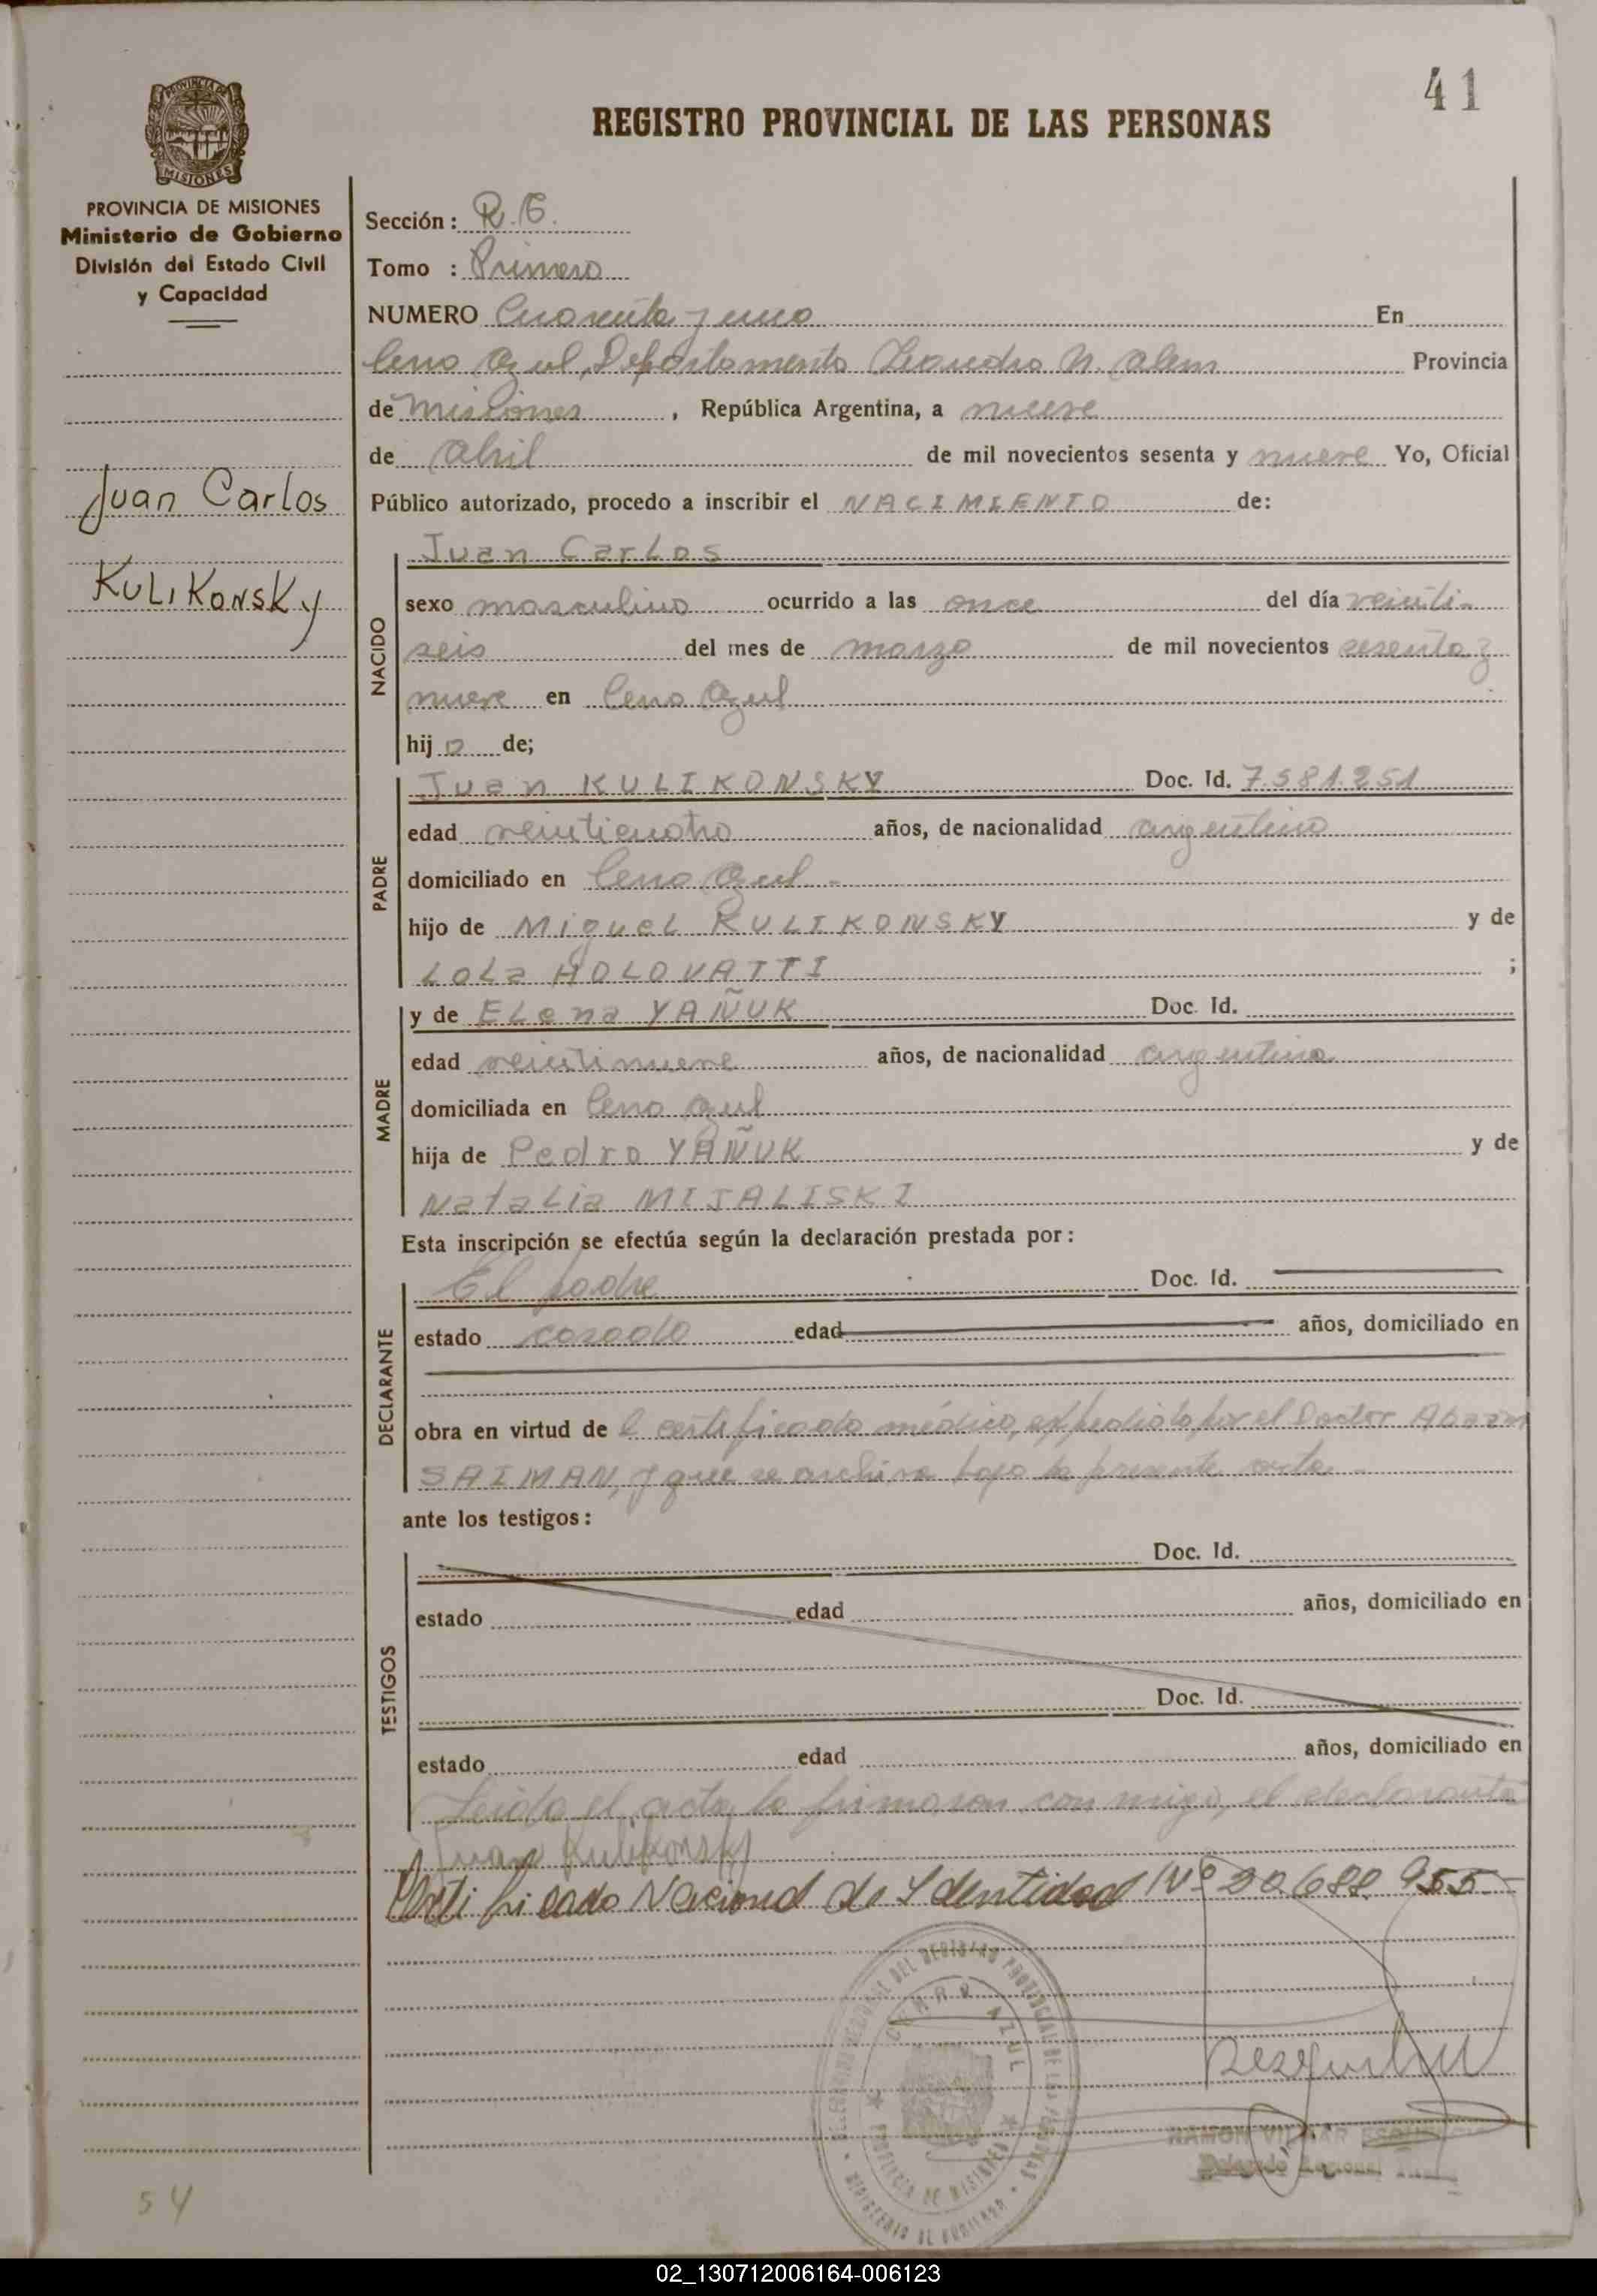 41
REGISTRO PROVINCIAL DE LAS PERSONAS
PROVINCIA DE MISIONES
Ministerio de Gobierno
División del Estado Civil
y Capacidad
Juan Carlos
KULIKONSKY
Sección: R.G.
Tomo : Primero
NUMERO Cuarenta y uno En
Cerro Azul, Departamento Leandro N. Alem Provincia
de Misiones, República Argentina, a nueve
de Abril de mil novecientos sesenta y nueve Yo, Oficial
Público autorizado, procedo a inscribir el NACIMIENTO de:
NACIDO
Juan Carlos
sexo masculino ocurrido a las once del día veinti-
seis del mes de marzo de mil novecientos sesenta y
nueve en Cerro Azul
hijo de;
PADRE
Juan KULIKONSKY Doc. Id. 7.581.251
edad veinticuatro años, de nacionalidad argentino
domiciliado en Cerro Azul.-
hijo de Miguel KULIKONSKY y de
Lola HOLOVATTI ;
MADRE
y de Elena YAÑUK Doc. Id.
edad veintinueve años, de nacionalidad argentina
domiciliada en Cerro Azul
hija de Pedro YAÑUK y de
Natalia MIJALISKI
Esta inscripción se efectúa según la declaración prestada por:
DECLARANTE
El padre Doc. Id.
estado casado edad años, domiciliado en
obra en virtud del certificado médico, expedido por el Doctor
SAIMAN, y que se archiva bajo la presente acta.-
ante los testigos:
TESTIGOS
Doc. Id.
estado edad años, domiciliado en
Doc. Id.
estado edad años, domiciliado en
Leida el acta, la firmaron conmigo, el declarante
Juan Kulikonsky
Certificado Nacional de Identidad Nº 20.688.955-
CERRO AZUL
PROVINCIA DE MISIONES
MINISTERIO DE GOBIERNO
RAMON
Delegado Regional
54
02_130712006164-006123